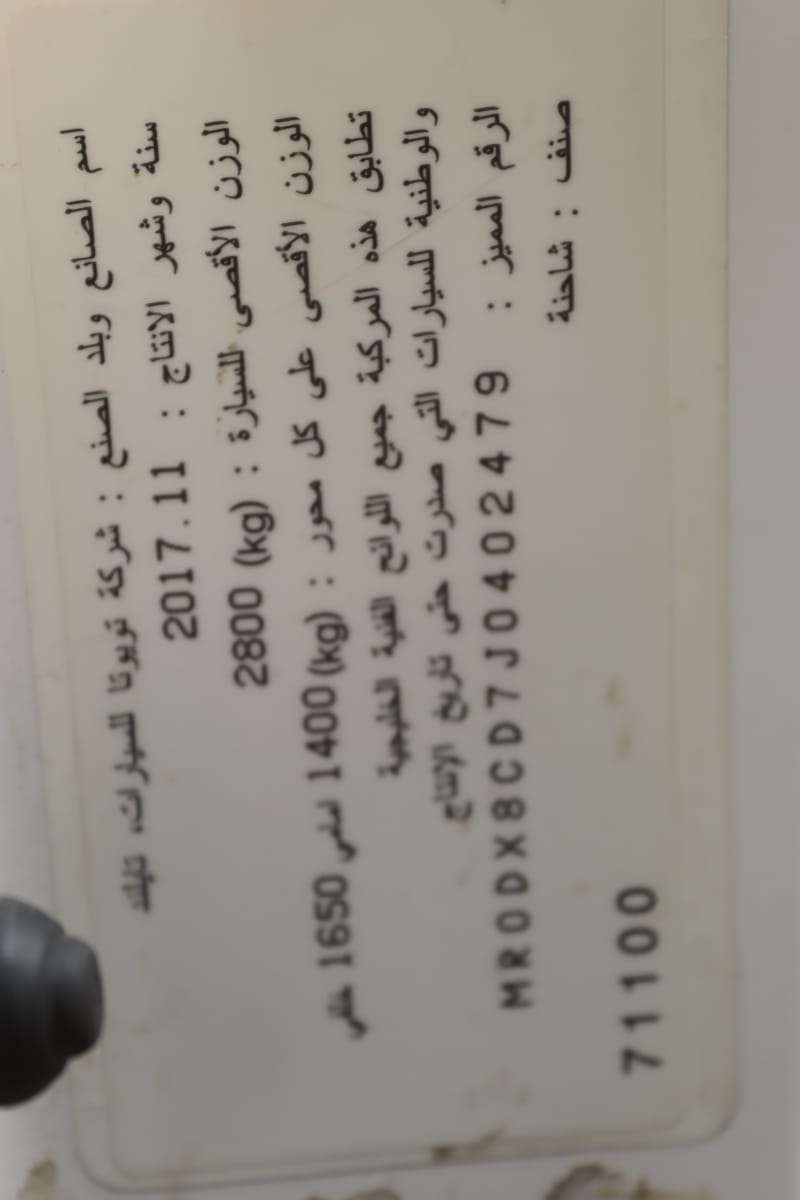 اسم الصانع وبلد الصنع : شركة تويوتا للسيارات، تايلاند
سنة وشهر الانتاج : 2017.11
الوزن الأقصى للسيارة : 2800 (kg)
الوزن الأقصى على كل محور : (kg) 1400 امامي 1650 خلفي
تطابق هذه المركبة جميع اللوائح الفنية الخليجية
والوطنية للسيارات التي صدرت حتى تاريخ الانتاج
الرقم المميز : MR0DX8CD7J0402479
صنف : شاحنة
71100